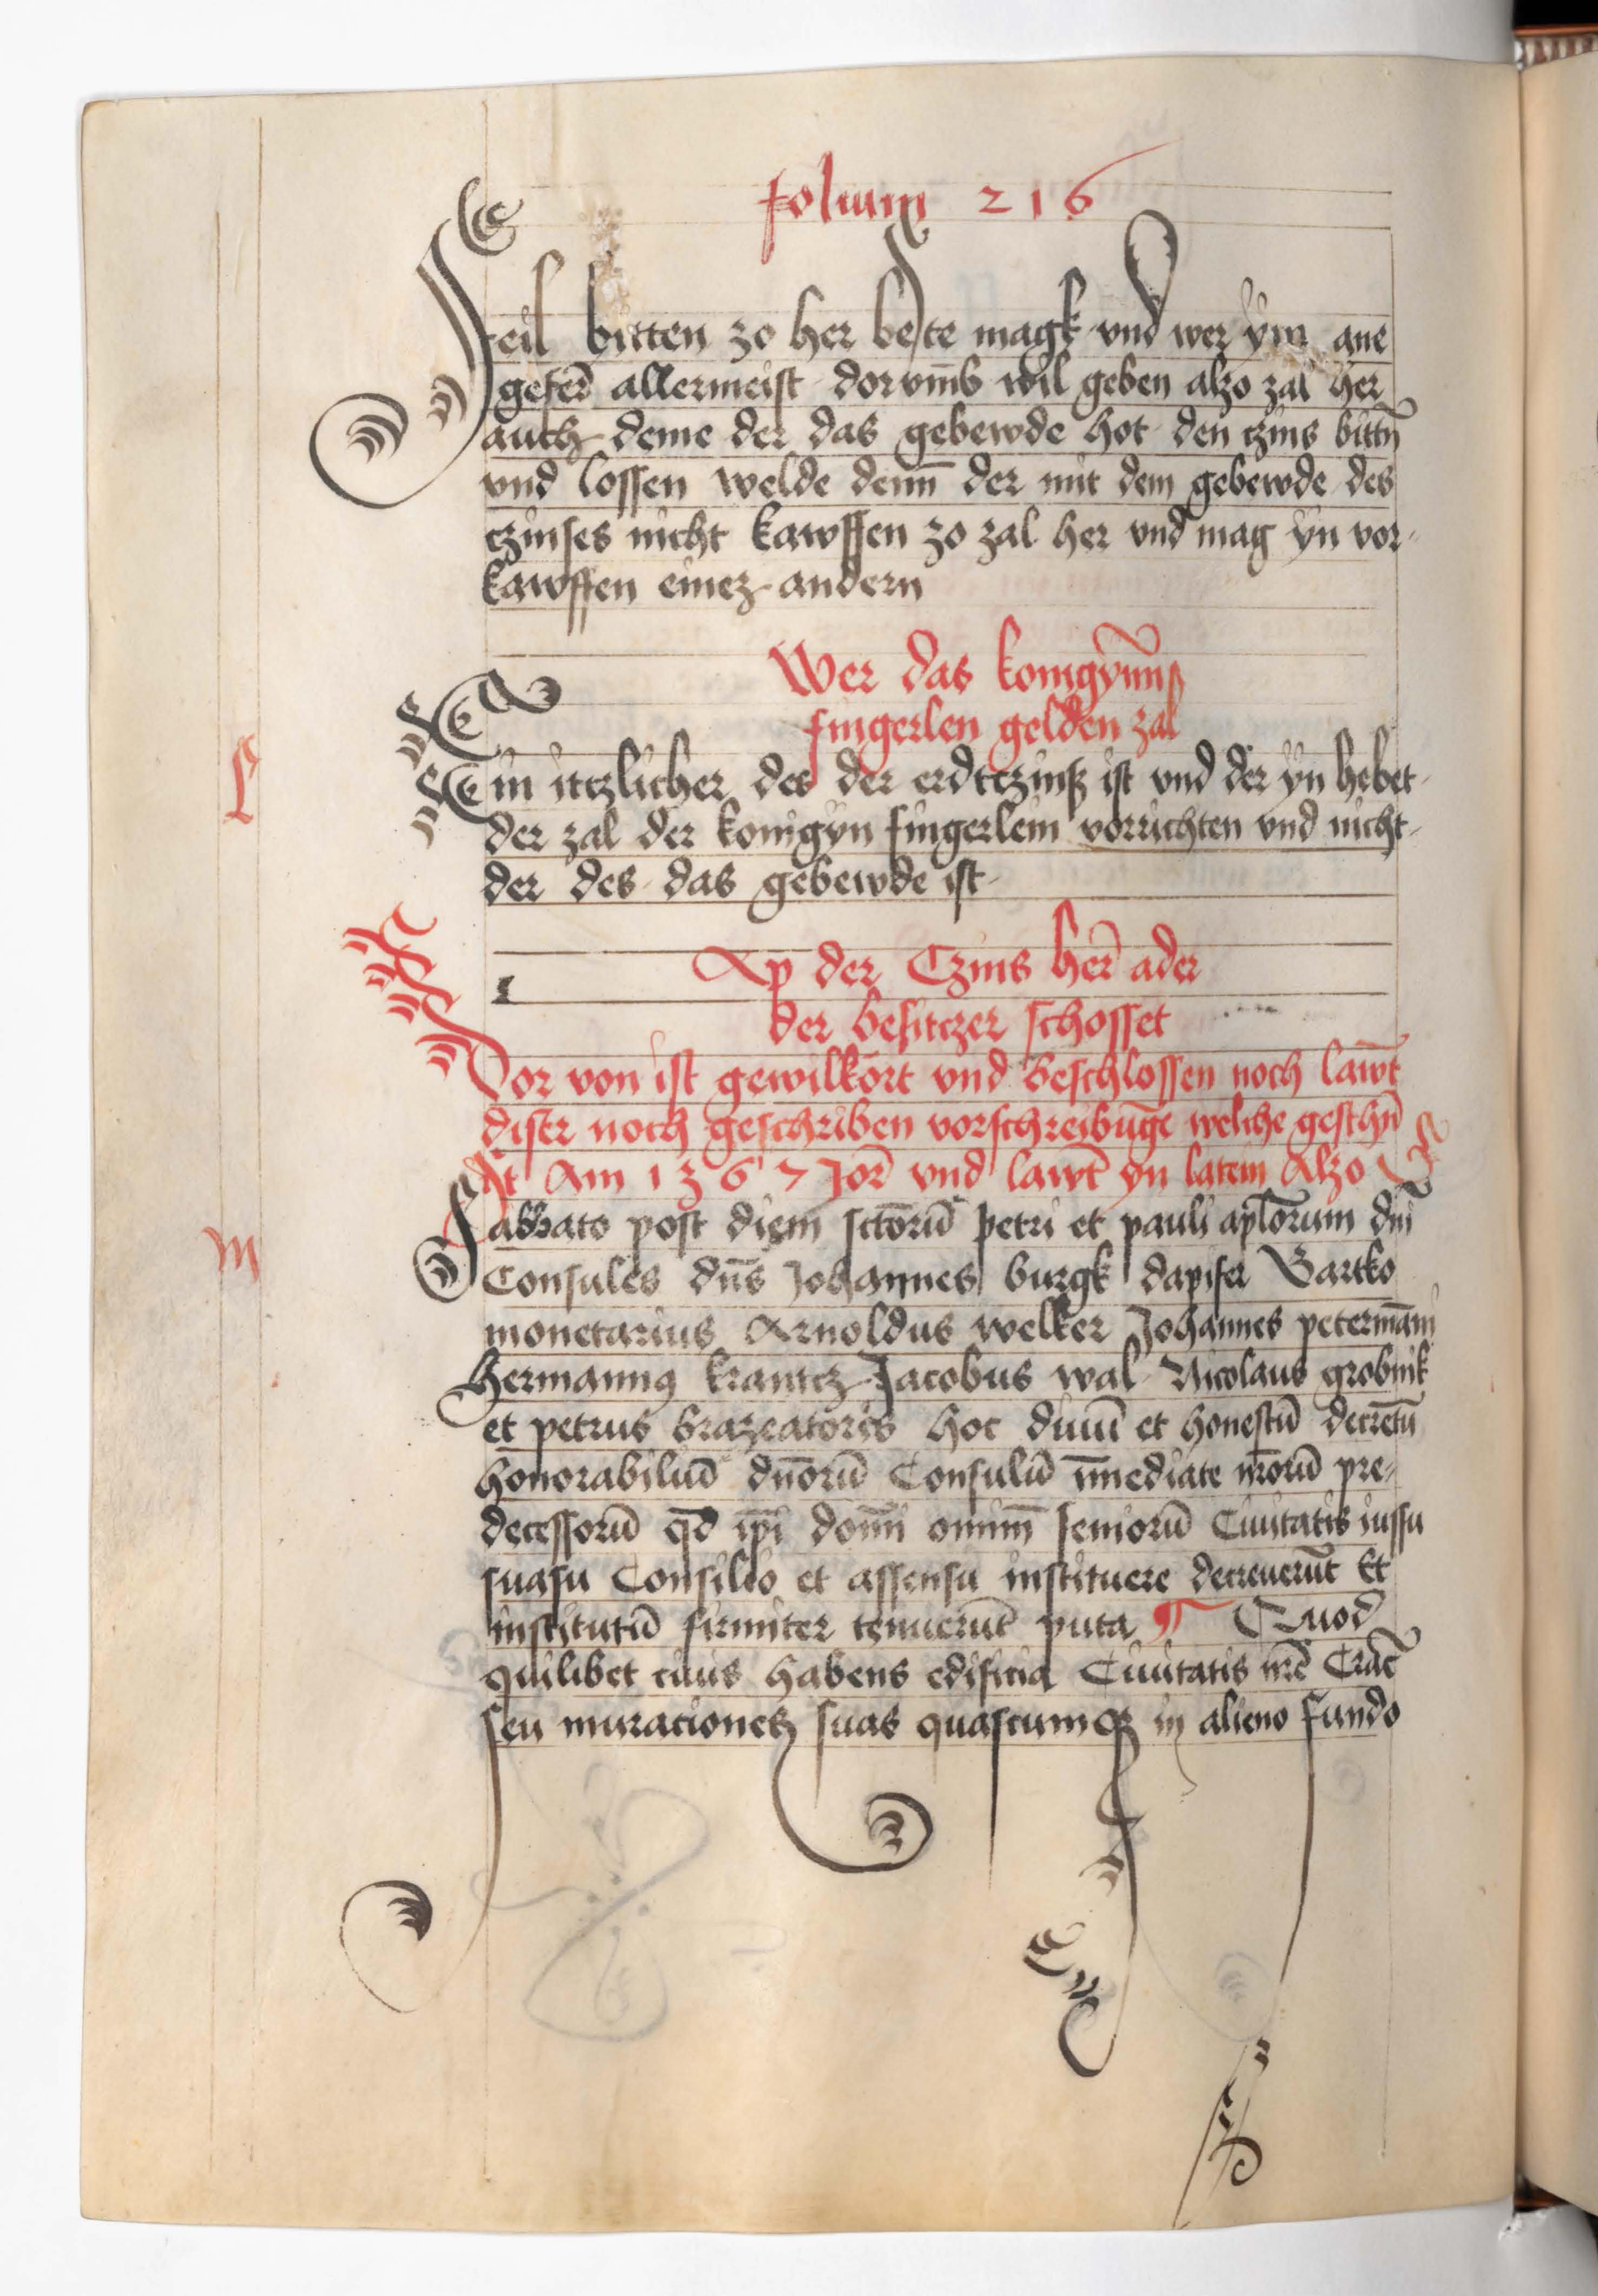 folium 216
feil bitten zo her beste magk vnd wer ym ane
geferd allermeist dorvm̄b wil geben alzo zal her
auch deme der das gebewde hot den czins bittñ
vnd lossen welde denn̄ der mit dem gebewde des
czinses nicht kawffen zo zal her vnd mag yn vor-
kawffen einez andern
Wer das konigynn̄
fingerlen gelden zal
L
Ein itzlicher des der erdtczinß ist vnd der yn hebet
der zal der konigyn fingerlein vorrichten vnd nicht
der des das gebewde ist
Ap der Czins her̄ ader
der besitczer schosset
Dor von ist gewilkort vnd beschlossen noch lawt̄
diser noch geschriben vorschreibūge welche geschñ
At Am 1367 Jor̄ vnd lawt̄ yn latein Alzo
M
Sabbato post diem sctōrū petri et pauli apl̄orum dn̄i
Consules dn̄s Johannes burgk dapifer Bartko
monetarius Arnoldus welker Johannes petermān
Hermannꝰ krantcz Jacobus wal Nicolaus grobnik
et petrus brazeatoris hoc diuū et honestū decretū
honorabiliū dn̄orū Consulū īmediate nr̄orū pre-
decessorū qd̄ ip̄i domn̄i omim̄ senioru̅ Ciuitatis iussu
suasu Consilio et assensu instituere decreuerūt Et
institutū firmiter tenuerūt puta ¶ Quod
quilibet ciuis habens edificia Ciuitatis nr̄e Crac̄
seu murationes suas quascumqꝫ in alieno fundo